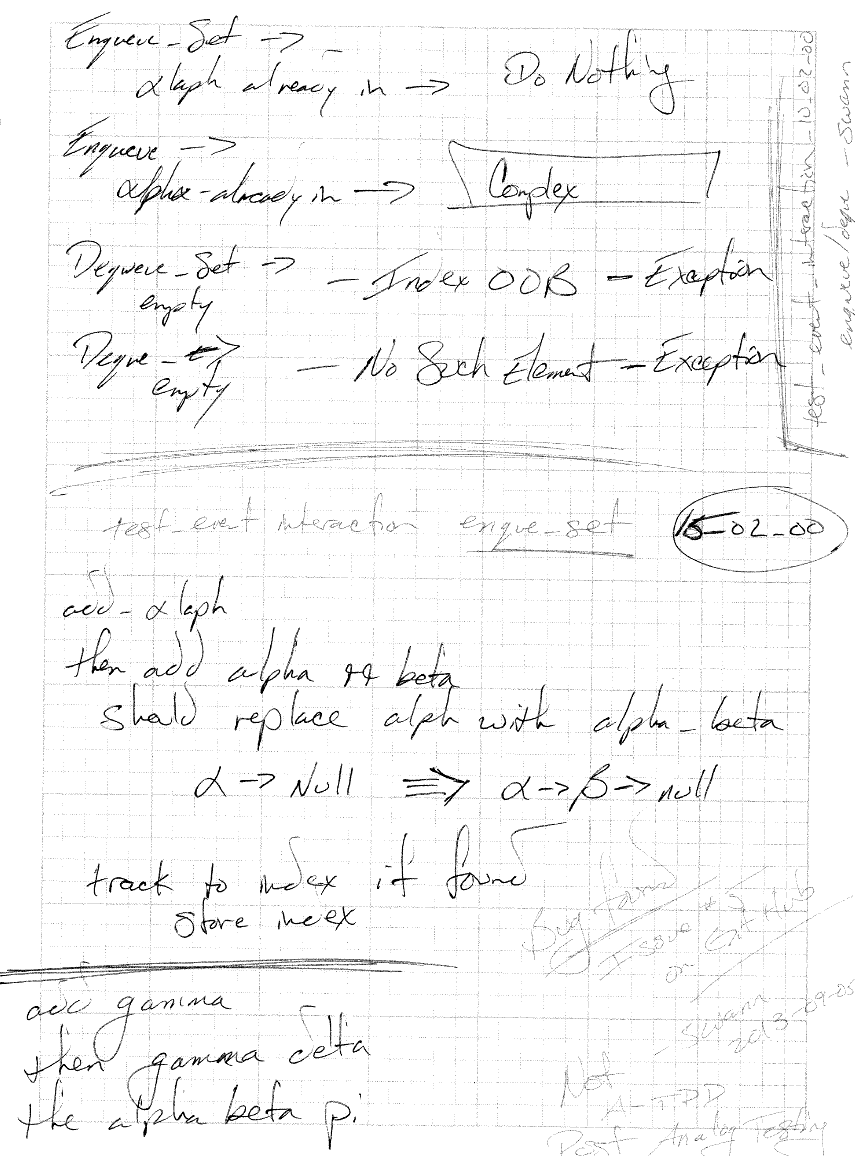 Enqueue_Set ->
αlaph already in -> Do Nothing
Enqueue ->
alpha-already in -> Complex
Dequeue_Set -> - Index OOB - Exaption
empty
Deque_ -> - No Such Element - Exception
empty
test_event_interaction_10_02_00
enqueue/deque - Swann
test_event interaction enque_set 15_02_00
add - αlaph
then add alpha && beta
should replace alph with alpha_beta
α -> Null => α -> β -> null
track to index if found
store index
Bug found
Issue
on Git Hub
- Swann
2013-09-05
add gamma
then gamma delta
the alpha beta pi
Not
A-TDD
Post Analog Testing